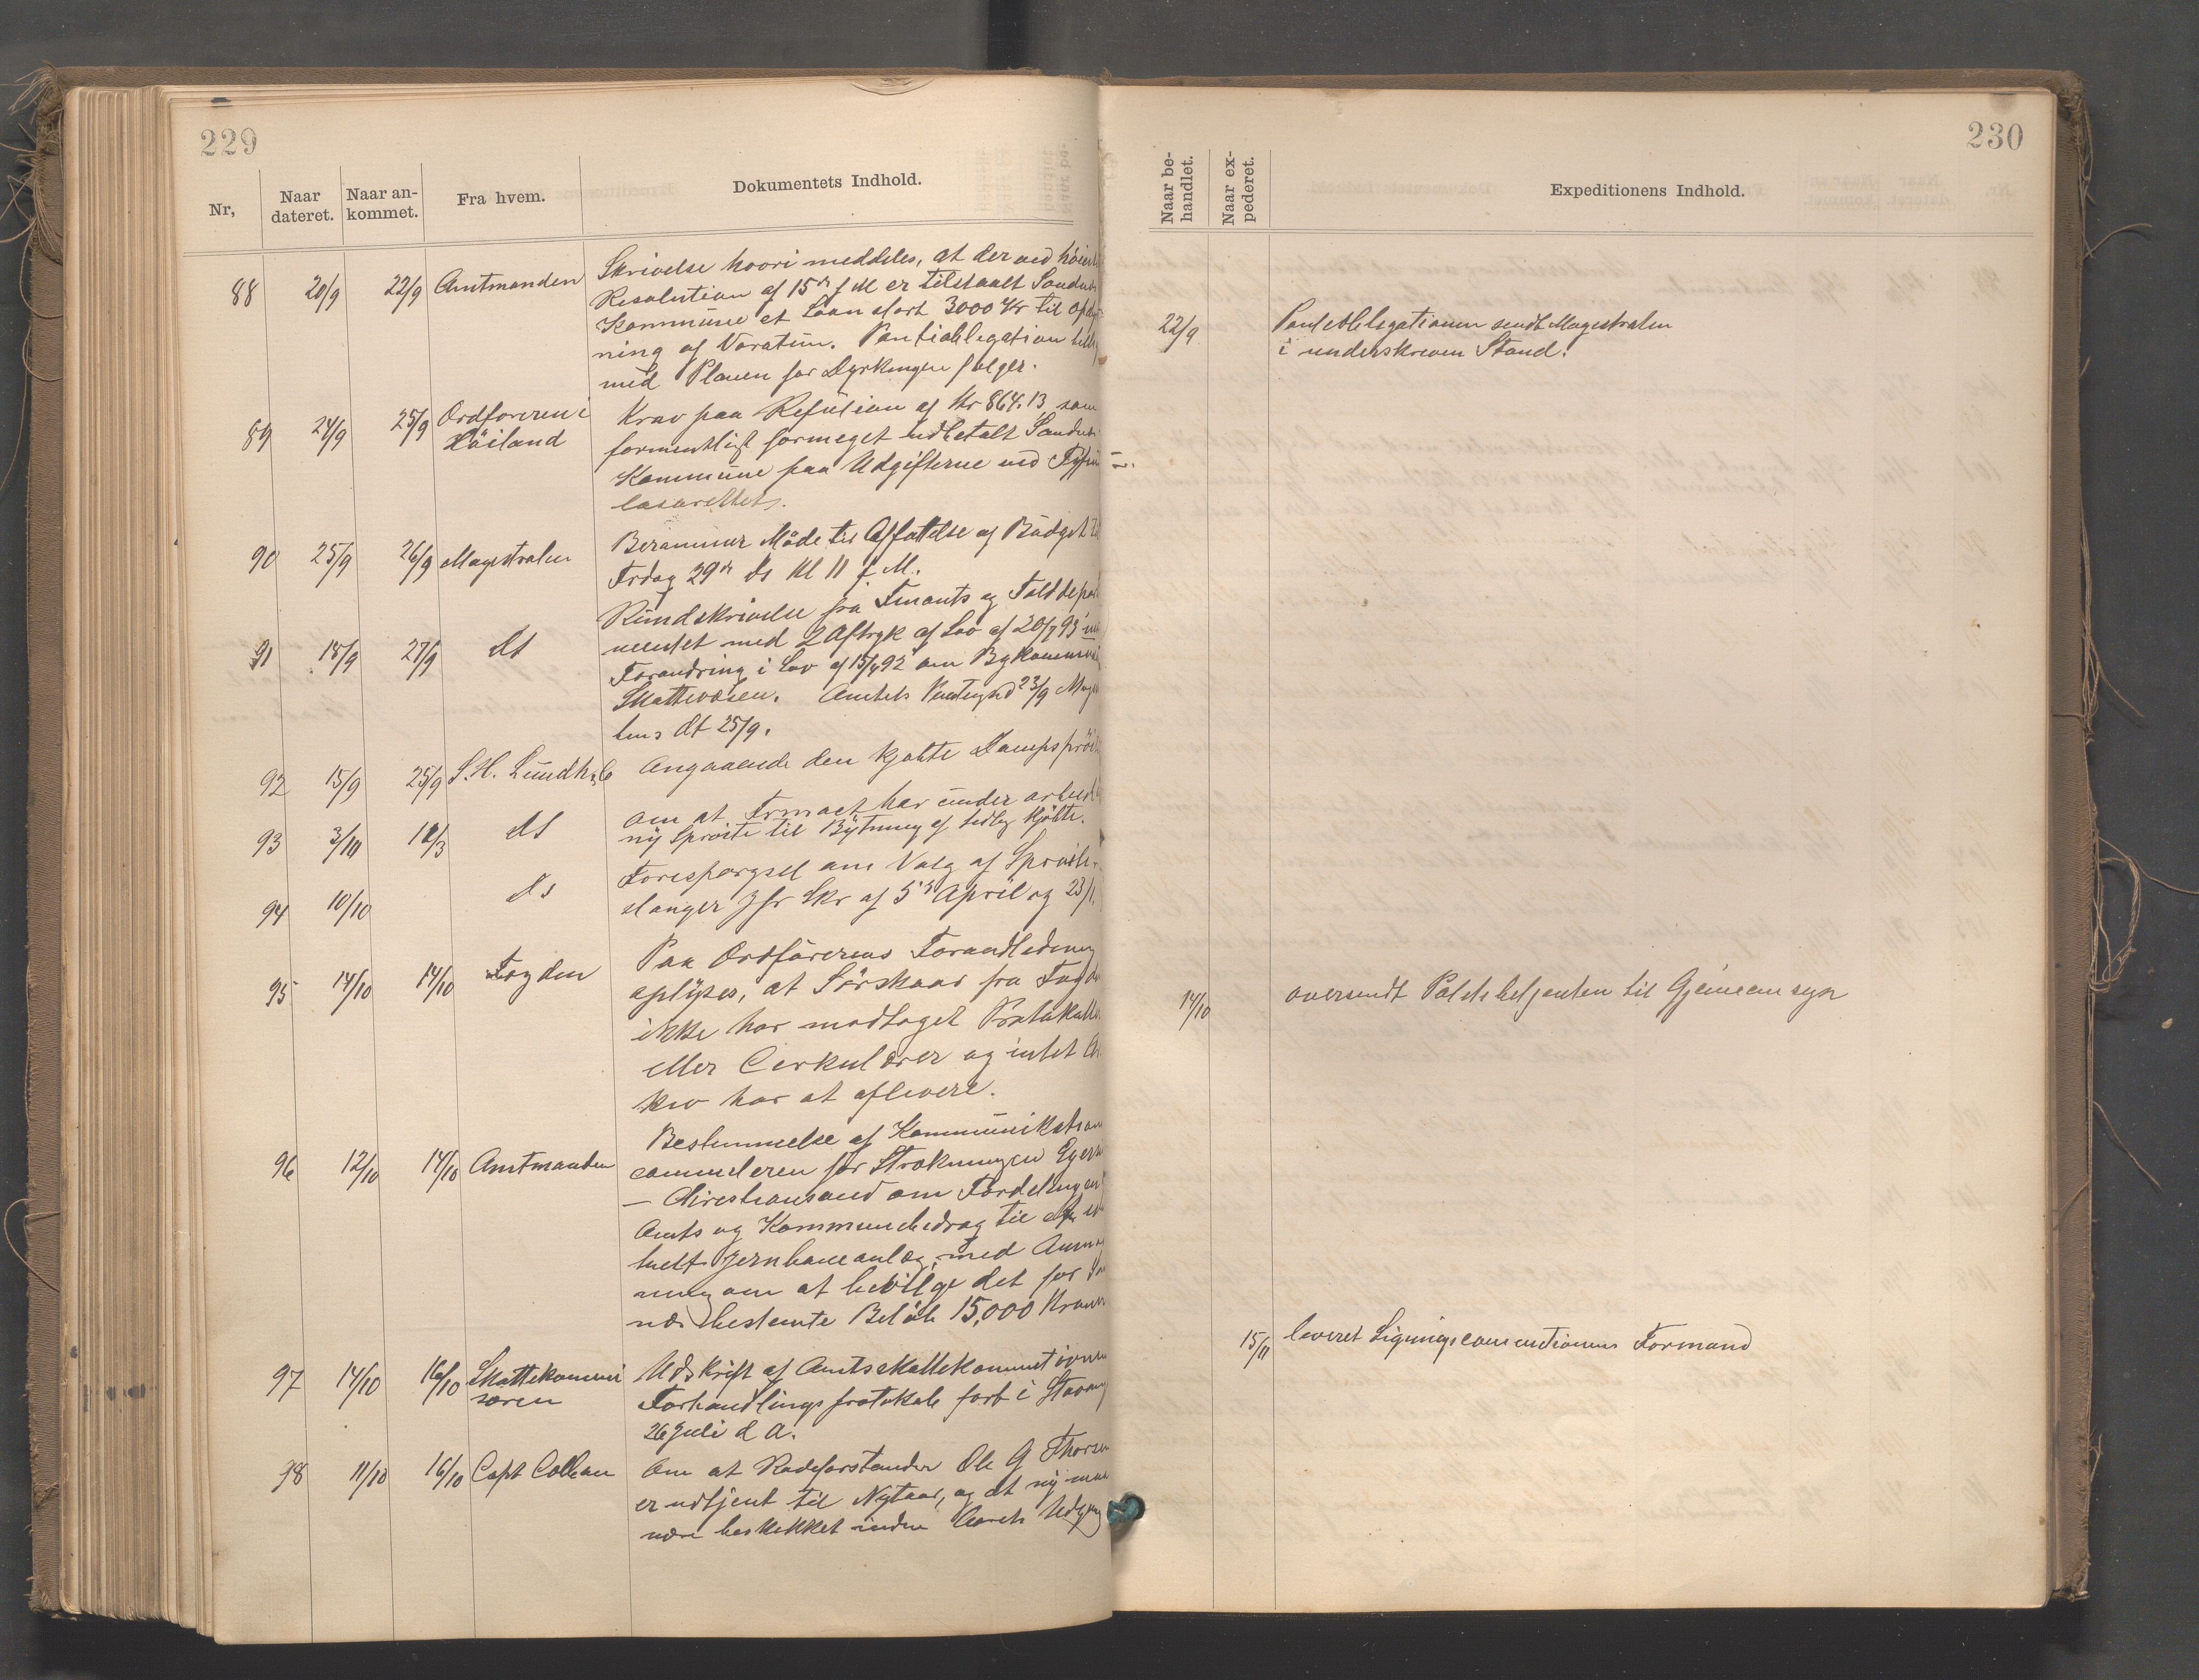 229
Nr,
Naar dateret.
Naar an-
kommet.
Fra hvem.
Dokumentets Indhold.
88 20/9 22/9 Amtmanden
Skrivelse hvori meddeles, at der ved
Resolution af 15de f M er tilstaalt
Kommune et Laan stort 3000 Kr til
ning af Vatne. Panteobligation
med Planen for Dyrkningen følger.
89 24/9 25/9 Ordføreren i
Håiland
Krav paa Refusion af Kr 864.13 som
formentligt formeget udbetalt
Kommune paa Udgifterne ved
lasarettet.
90 25/9 26/9 Magistraten
Berammer Møde til Affattelse af Budget
Fredag 29de ds Kl 11 f.M.
91 15/9 27/9 ds
Rundskrivelse fra Finants og
mentet med 2 Aftryk af Lov af 20/7 93
Forandring i Lov af 15/4 92 om
Skattevæsen. Amtets 23/9
tens dt 25/9.
92 15/9 25/9 S. H. Lundh &C
Angaaende den kjøbte
93 3/10 12/3 ds
om at Firmaet har under
ny Sprøite til Bytning af kjøbte.
94 10/10 ds
Forespørgsel om Valg af
slanger Jfr Skr af 5te April og
95 14/10 14/10 Fogden
Paa Ordførerens Foranledning
oplyses, at Sörskaar fra
ikke har modtaget
eller Cirkulærer og intet
kiv har at aflevere.
96 12/10 14/10 Amtmanden
Bestemmelse af
comiteen for Strækningen
— Christiansand om Fordelingen
Amts og Kommunebidrag til
tuelt Jernbaneanlæg, med
ning om at bevilge det for
næs bestemte Beløb 15,000 Kroner
97 14/10 16/10 Skattekommi
særen
Udskrift af
Forhandlingsprotokol fort i
26 Juli d A.
98 11/10 16/10 Capt
Om at Rodeforstander Ole G
er udtjent til Nytaar, og at ny
være beskikket inden Aarets
230
Naar be-
handlet.
Naar ex-
pederet.
Expeditionens Indhold.
22/9 Panteobligationen sendt Magistraten
i underskreven Stand.
14/10 oversendt Politibetjenten til Gjennemsyn
15/11 leveret Formand